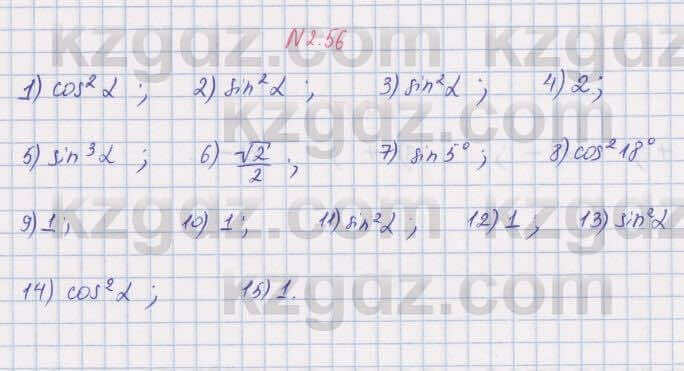 N 2.56
1) cos² α ; 2) sin² α ; 3) sin² α ; 4) 2;
5) sin³ α ; 6) √2/2 ; 7) sin 5° ; 8) cos² 18°
9) 1; 10) 1; 11) sin² α ; 12) 1 ; 13) sin² α
14) cos² α ; 15) 1.
kzgdz.com
kzgdz.com
kzgdz.com
kzgdz.com